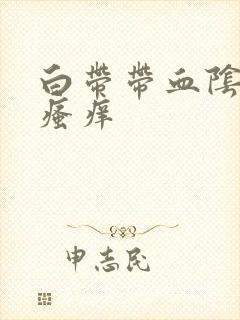 白带带血陰
瘙痒
申志民